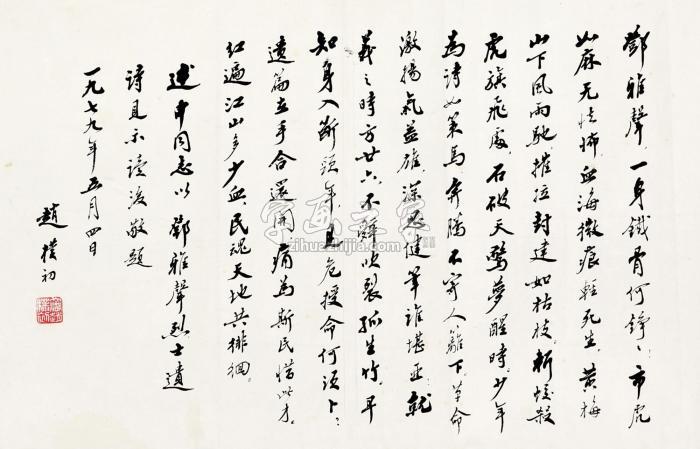 鄧雅聲,一身鐵骨何錚〻。市虎
如麻无怯怖,血海微痕輕死生。黃梅
山下風雨馳,摧拉封建如枯枝。斬蛟殺
虎旗飛處,石破天驚夢醒時。少年
為詩如策馬,奔騰不寄人籬下。革命
激揚氣益雄,深思健筆誰堪亞。就
義之時方廿六,不辭吹裂孤生竹。早
知身入斷頭年,見危授命何須卜。
遺篇在手合還開,痛為斯民惜此才。
紅遍江山多少血,民魂天地共徘徊。
述申同志以鄧雅聲烈士遺
詩見示讀後敬題
一九七九年五月四日
趙樸初
字画之家
zihuazhijia.com